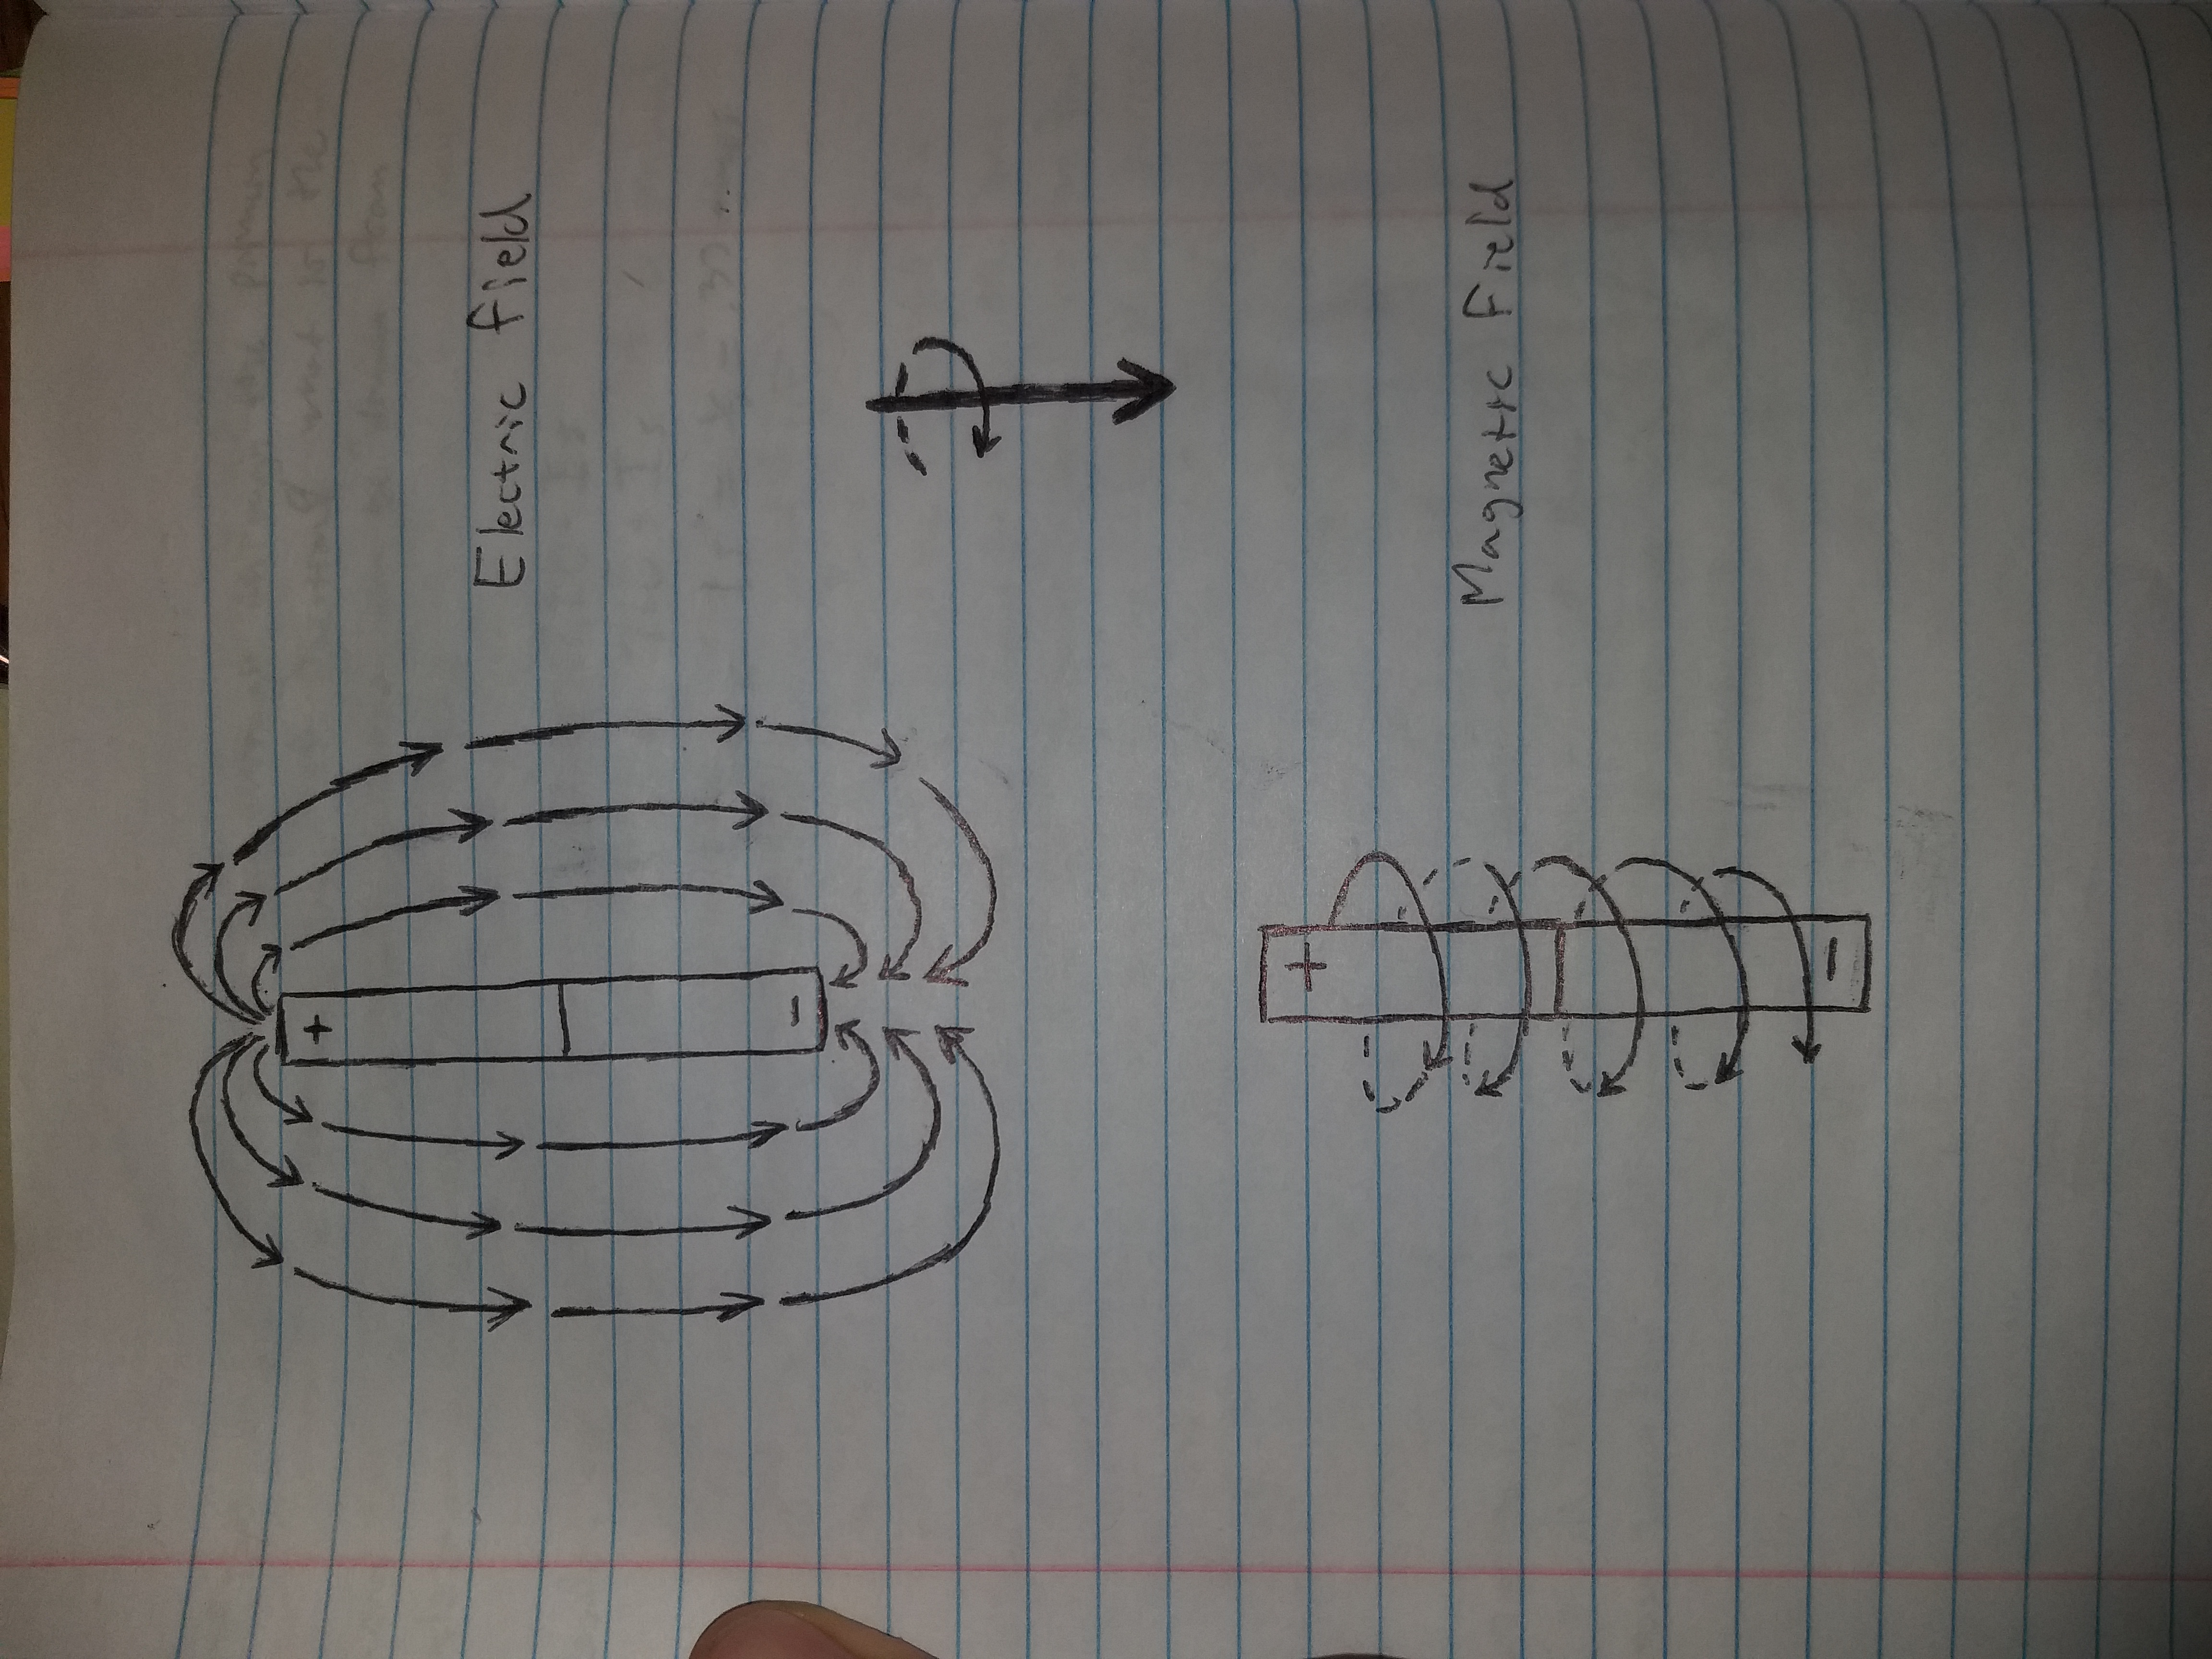 +
Electric Field
-
+
Magnetic Field
-